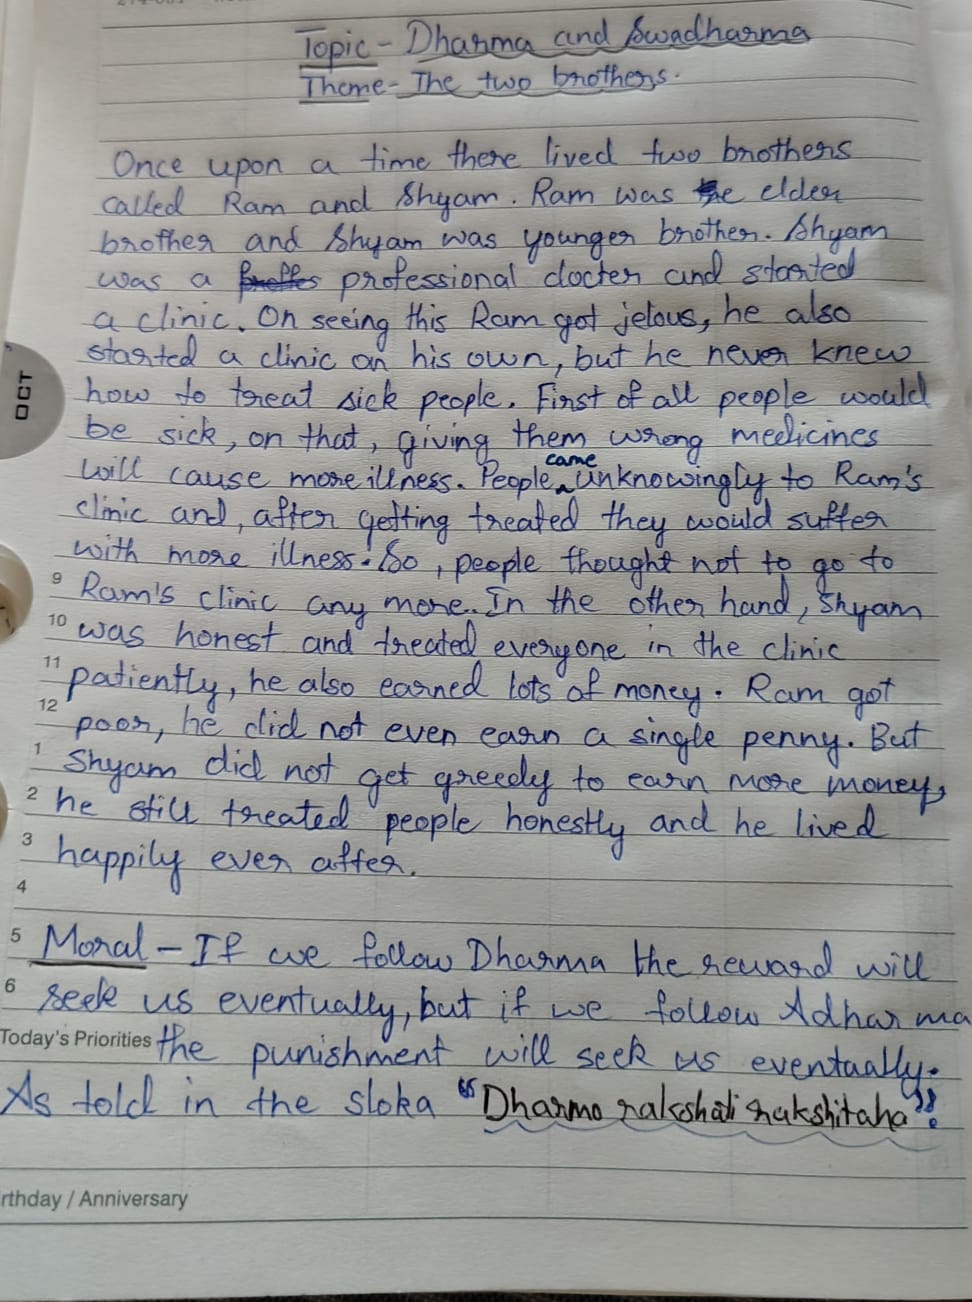 Topic - Dharma and Swadharma
Theme - The two brothers.
Once upon a time there lived two brothers
called Ram and Shyam. Ram was the elder
brother and Shyam was younger brother. Shyam
was a professional docter and started
a clinic. On seeing this Ram got jelous, he also
started a clinic on his own, but he never knew
how to treat sick people. First of all people would
be sick, on that, giving them wrong medicines
will cause more illness. People came unknowingly to Ram's
clinic and, after getting treated they would suffer
with more illness. So, people thought not to go to
9 Ram's clinic any more. In the other hand, Shyam
10 was honest and treated everyone in the clinic
11 patiently, he also earned lots of money. Ram got
12 poor, he did not even earn a single penny. But
1 Shyam did not get greedy to earn more money,
2 he still treated people honestly and he lived
3 happily ever after.
4
5 Moral - If we follow Dharma the reward will
6 seek us eventually, but if we follow Adharma
Today's Priorities the punishment will seek us eventually.
As told in the sloka "Dharmo rakshati rakshitaha".
rthday / Anniversary
OCT